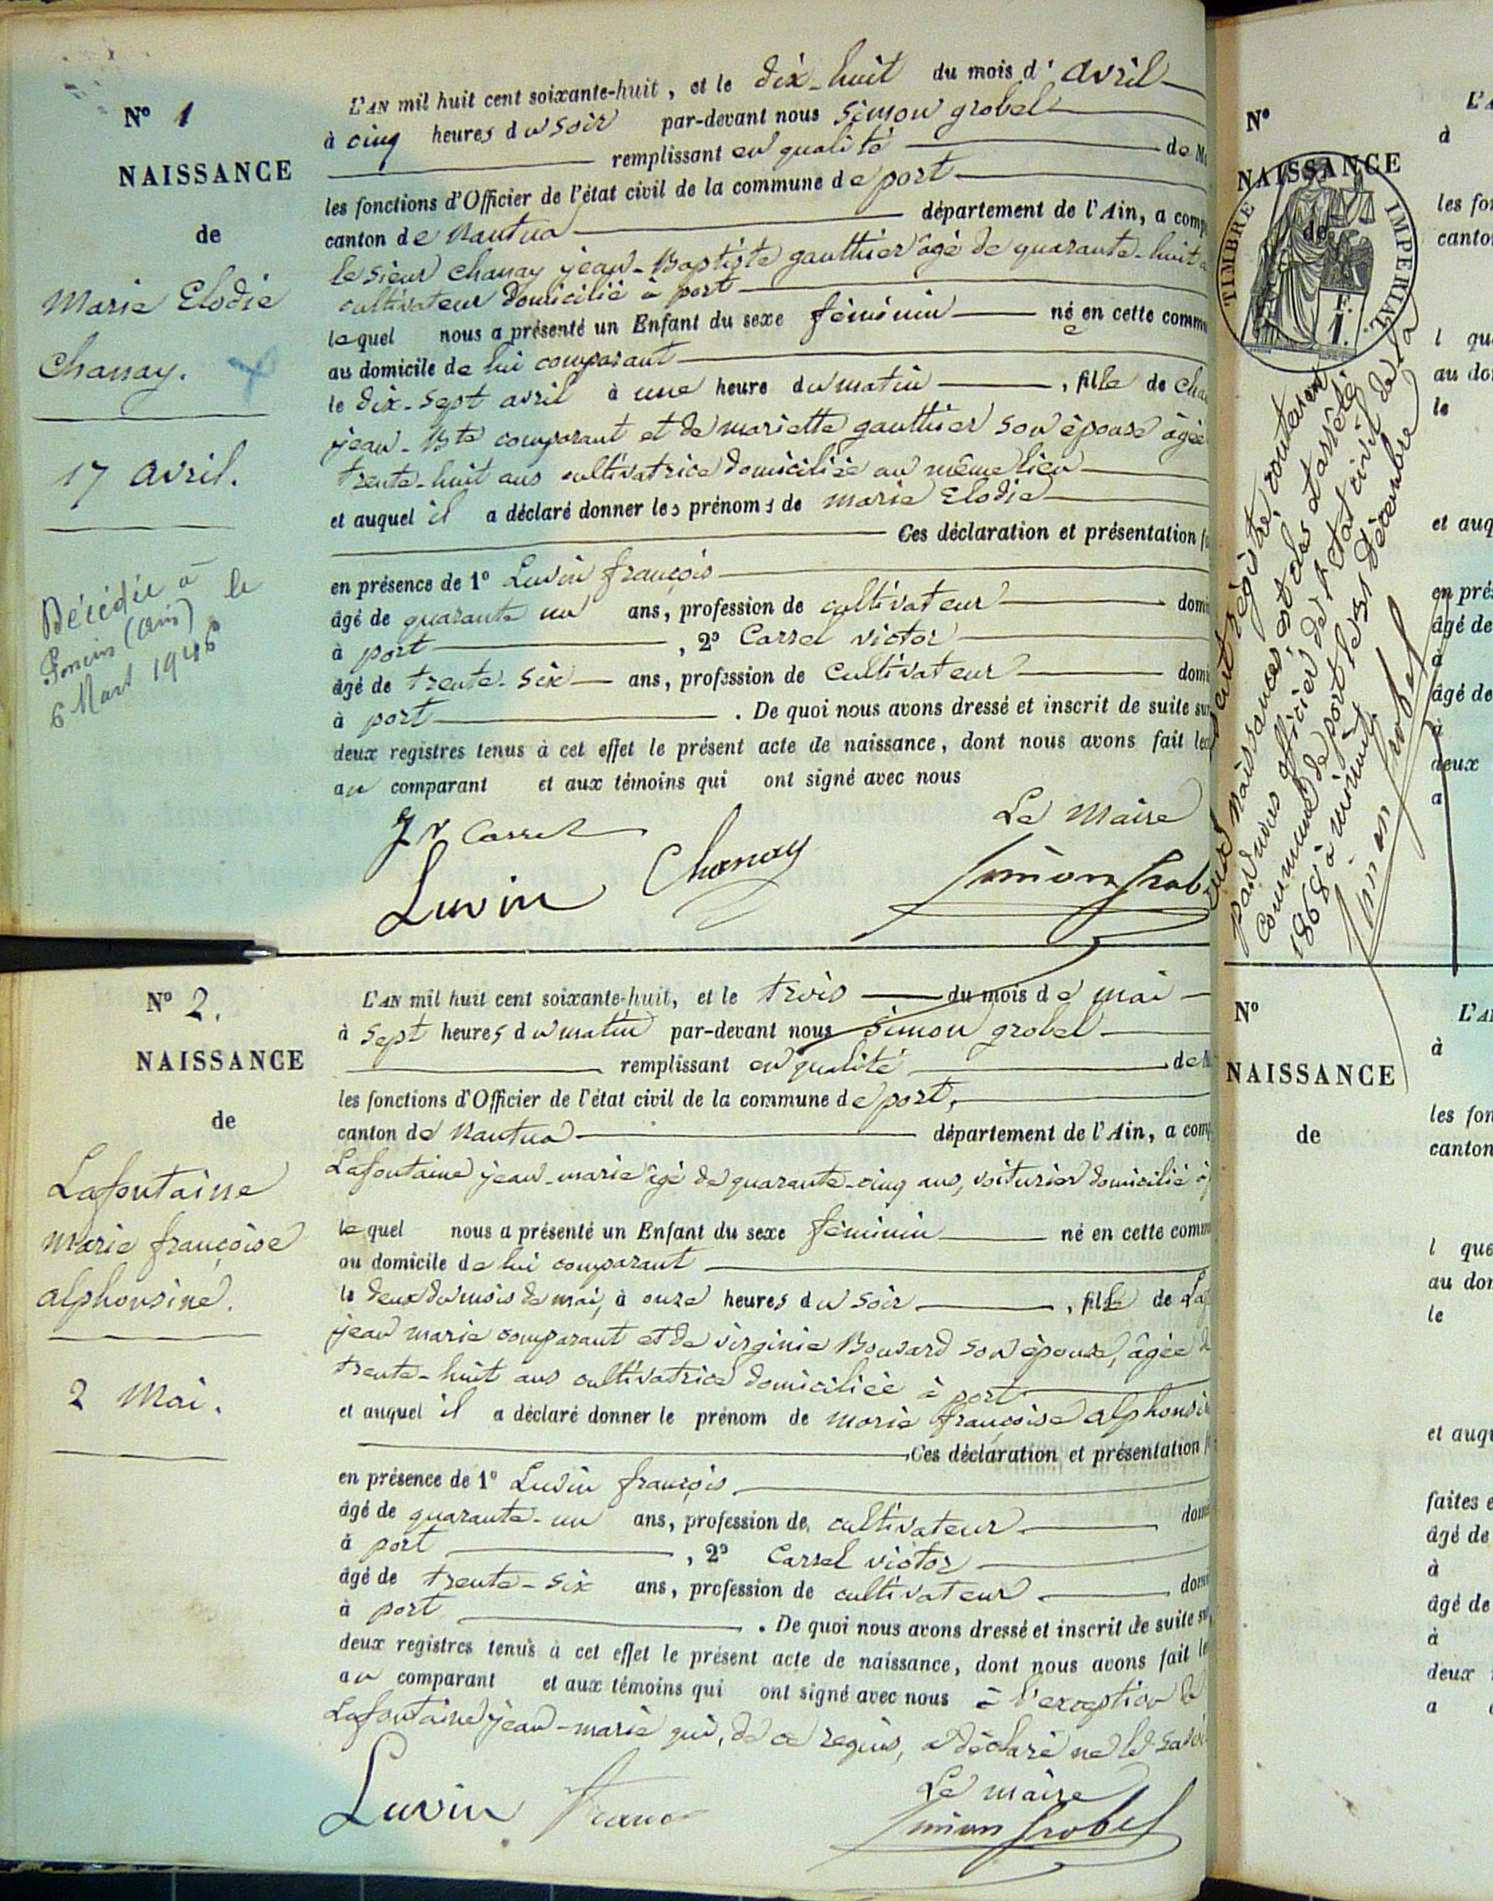 N° 1
NAISSANCE
de
Marie Elodie
Chanay.
17 avril.
Décédée à
Poncin (Ain) le
6 Mart 1946
L'AN mil huit cent soixante-huit, et le dix-huit du mois d'avril
à cinq heures du soir par-devant nous Simon grobel
remplissant en qualité de M
les fonctions d'Officier de l'état civil de la commune de port
canton de Nantua département de l'Ain, a comp
le sieur Chanay jean-Baptiste gauthier âgé de quarante-huit a
cultivateur domicilié à port
lequel nous a présenté un Enfant du sexe féminin née en cette commu
au domicile de lui comparant
le dix-sept avril à une heure du matin, fille de Cha
jean-Bte comparant et de mariette gauthier son épouse âgée
trente-huit ans cultivatrice domiciliée au même lieu
et auquel il a déclaré donner les prénoms de marie Elodie
Ces déclaration et présentation f
en présence de 1° Luvin françois
âgé de quarante un ans, profession de cultivateur domi
à port, 2° Carrel victor
âgé de trente-six ans, profession de cultivateur domi
à port. De quoi nous avons dressé et inscrit de suite sur
deux registres tenus à cet effet le présent acte de naissance, dont nous avons fait lec
au comparant et aux témoins qui ont signé avec nous
Le Maire
J V Carrel
Luvin Chanay Simon Grob
N° 2.
NAISSANCE
de
Lafontaine
marie françoise
alphonsine.
2 Mai.
L'AN mil huit cent soixante-huit, et le trois du mois de mai
à sept heures du matin par-devant nous Simon grobel
remplissant en qualité de M
les fonctions d'Officier de l'état civil de la commune de port,
canton de Nantua département de l'Ain, a comp
Lafontaine jean-marie âgé de quarante-cinq ans, voiturier domicilié à
lequel nous a présenté un Enfant du sexe féminin né en cette comm
au domicile de lui comparant
le deux du mois de mai, à onze heures du soir, fille de Laf
jean marie comparant et de virginie Bonsard son épouse, âgée d
trente-huit ans cultivatrice domiciliée à port
et auquel il a déclaré donner le prénom de marie françoise alphonsi
Ces déclaration et présentation f
en présence de 1° Luvin françois
âgé de quarante-un ans, profession de cultivateur dom
à port, 2° Carrel victor
âgé de trente-six ans, profession de cultivateur dom
à port. De quoi nous avons dressé et inscrit de suite sur
deux registres tenus à cet effet le présent acte de naissance, dont nous avons fait le
au comparant et aux témoins qui ont signé avec nous à l'exception de
Lafontaine jean-marie qui, de ce requis, a déclaré ne le savoi
Le maire
Luvin Simon Grobel
N°
NAISSANCE
de
TIMBRE IMPERIAL.
F.
1.
registre, contenant
naissances est clos et arrêté
par nous officier de l'état civil de la
Commune de port le 31 décembre
1868 à minuit
Simon Grobel
L'A
à
les fon
canton
l que
au dom
le
et auq
en prés
âgé de
à
âgé de
à
deux
a
N°
NAISSANCE
de
L'A
à
les fon
canton
l que
au dom
le
et auqu
faites e
âgé de
à
âgé de
à
deux
a